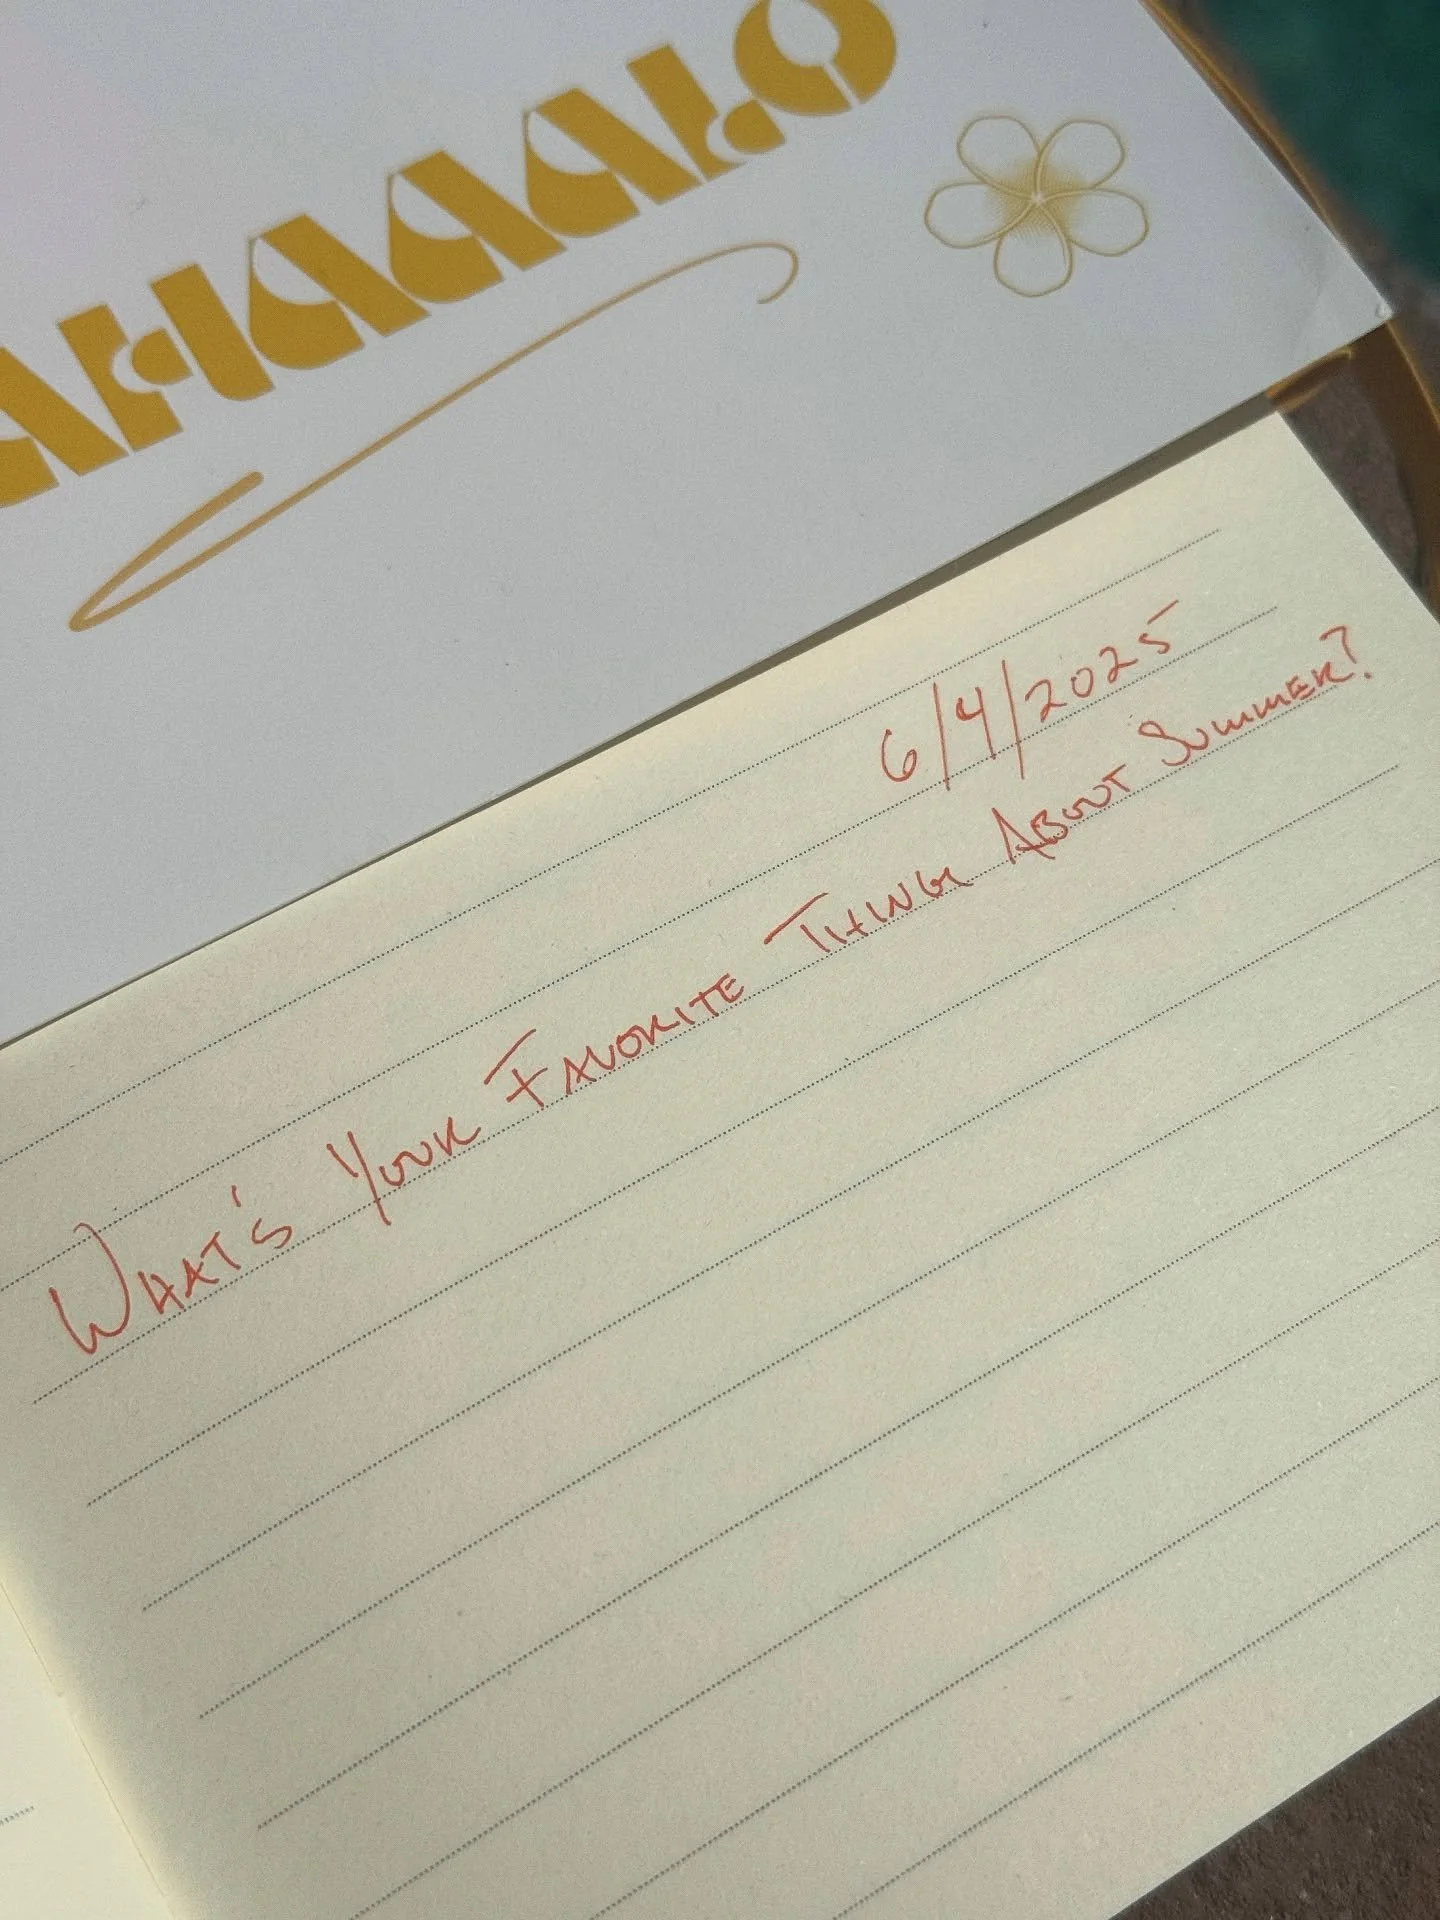 AHAAALO
6/4/2025
WHAT'S YOUR FAVORITE THING ABOUT SUMMER?